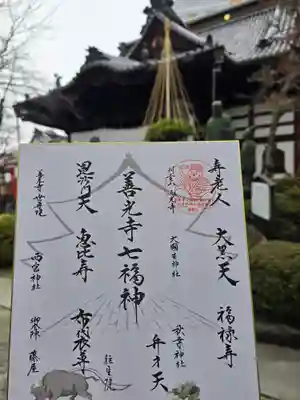 寿老人
大黒天
大国主神社
福禄寿
秋葉神社
弁才天
善光寺七福神
毘沙門天
恵比寿
西宮神社
布袋尊
御本陳 藤屋